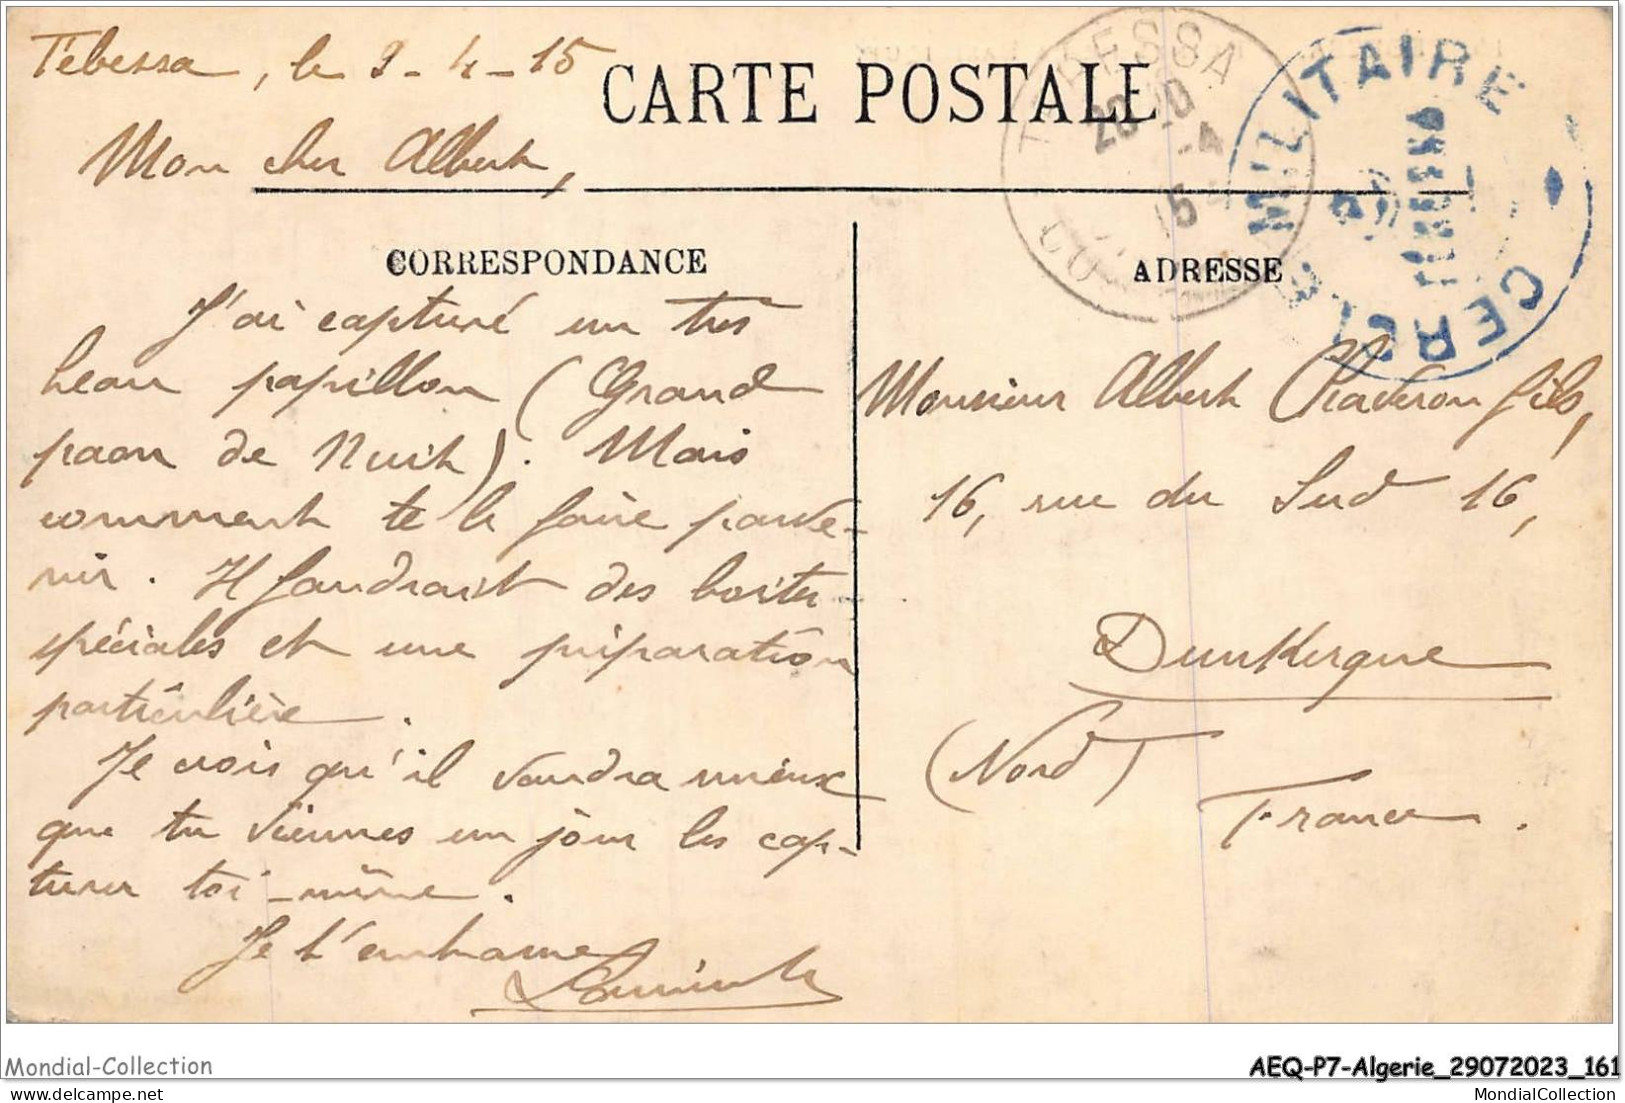 Tébessa, le 9-4-15
CARTE POSTALE
TEBESSA
20
-4
15
CERCLE MILITAIRE
TEBESSA
Mon cher Albert,
CORRESPONDANCE
J'ai capturé un très
beau papillon (Grand
paon de Nuit). Mais
comment te le faire parve-
nir. Il faudrait des boites
spéciales et une préparation
particulière.
Je crois qu'il vaudra mieux
que tu viennes un jour les cap-
turer toi-même.
Je t'embrasse
ADRESSE
Monsieur Albert Chaderon fils,
16, rue du Sud 16,
Dunkerque
(Nord)
France.
Mondial-Collection
AEQ-P7-Algerie_29072023_161
www.delcampe.net
MondialCollection